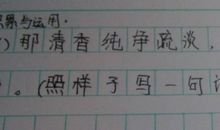 累与运用.
) 那清香纯净疏淡,
。(照样子写一句话